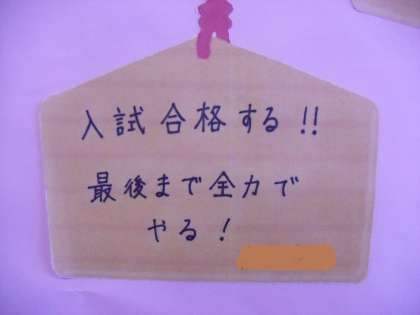 入試合格する!!
最後まで全力で
やる!